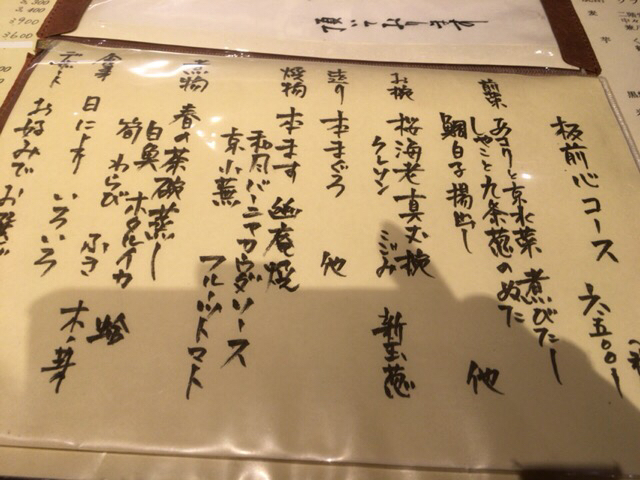 板前心コース 六、五〇〇ー
前菜 あさりと京水菜 煮びたし
しゃことと九条葱のぬた
鯛白子揚出し 他
お椀 桜海老真丈椀
クレソン ごごみ 新玉葱
造り 本まぐろ 他
焼物 本ます 幽庵焼
和風バーニャカウダソース
京小蕪 フルーツトマト
煮物 春の茶碗蒸し
白魚 ホタルイカ 蛤
筍 わらび ふき 木ノ芽
食事 日により いろいろ
デザート お好みでお選び
頂いております
3,300
3,400
3900
3600